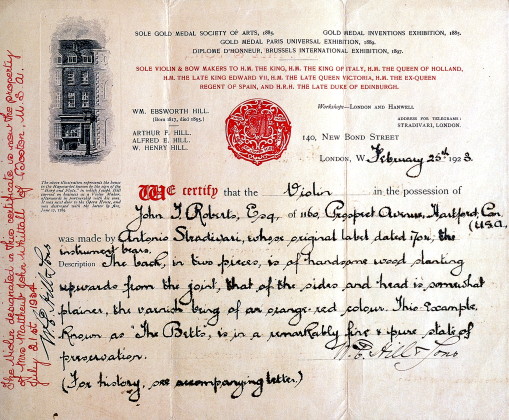 SOLE GOLD MEDAL SOCIETY OF ARTS, 1885. GOLD MEDAL INVENTIONS EXHIBITION, 1885.
GOLD MEDAL PARIS UNIVERSAL EXHIBITION, 1889.
DIPLOME D'HONNEUR, BRUSSELS INTERNATIONAL EXHIBITION, 1897.
SOLE VIOLIN & BOW MAKERS TO H.M. THE KING, H.M. THE KING OF ITALY, H.M. THE QUEEN OF HOLLAND,
H.M. THE LATE KING EDWARD VII, H.M. THE LATE QUEEN VICTORIA, H.M. THE EX-QUEEN
REGENT OF SPAIN, AND H.R.H. THE LATE DUKE OF EDINBURGH.
WM. EBSWORTH HILL.
(Born 1817, died 1895.)
ARTHUR F. HILL.
ALFRED E. HILL.
W. HENRY HILL.
Workshops—LONDON AND HANWELL
ADDRESS FOR TELEGRAMS:
STRADIVARI, LONDON.
140, NEW BOND STREET
LONDON, W. February 25th 1923.
The above illustration represents the house
in the Haymarket known by the sign of the
"Harp and Flute," in which Joseph Hill
carried on business as a Violin Maker,
afterwards in partnership with his sons.
It was next door to the Opera House, and
was destroyed with the latter by fire,
June 17, 1789.
WE certify that the Violin in the possession of
John T. Roberts, Esq. of 1160, Prospect Avenue, Hartford, Con.
(U.S.A.
was made by Antonio Stradivari, whose original label dated 1704, the
instrument bears.
Description The back, in two pieces, is of handsome wood slanting
upwards from the joint, that of the sides and head is somewhat
plainer, the varnish being of an orange-red colour. This Example,
known as "The Betts", is in a remarkably fine & pure state of
preservation.
W. E. Hill & Sons
(For history, see accompanying letter.)
The Violin designated in this certificate is now the property
of Mrs Matthew John Whittall of Boston U.S.A.
July 21st 1924
W. E. Hill & Sons